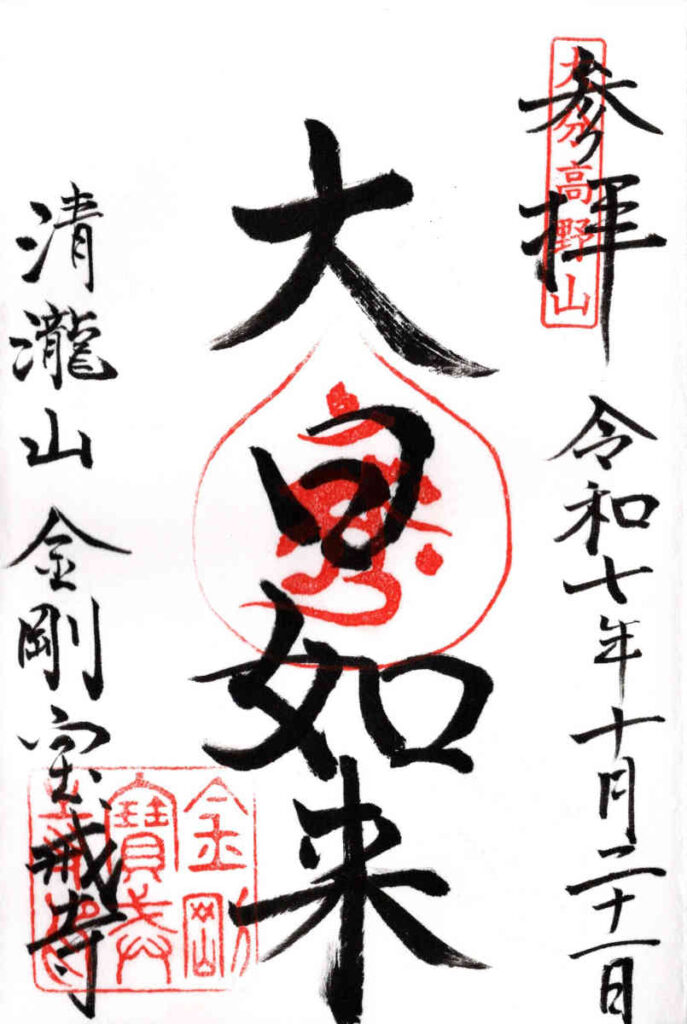 参拝
大分高野山
令和七年十月二十一日
大日如来
清瀧山 金剛宝戒寺